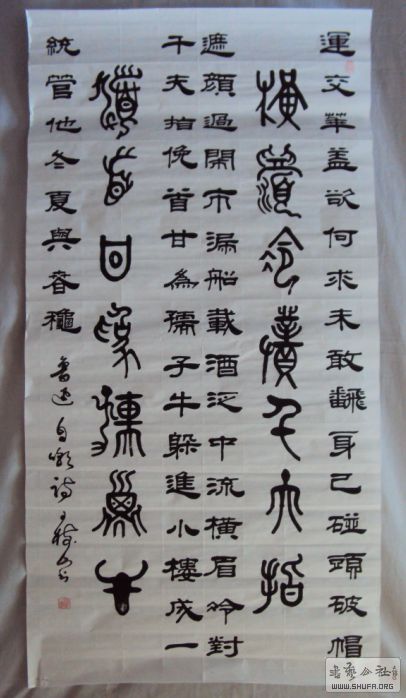 運交華蓋欲何求未敢飜身已碰頭破帽
橫眉冷對千夫指
遮顏過閙市漏船載酒泛中流橫眉冷對
千夫指俛首甘為孺子牛躲進小樓成一
首甘為孺子牛
統管他冬夏與春穐
魯迅自嘲詩
書藝公社
WWW.SHUFA.ORG